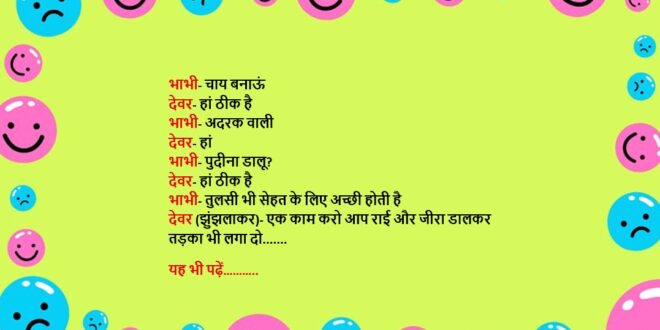 भाभी- चाय बनाऊं
देवर- हां ठीक है
भाभी- अदरक वाली
देवर- हां
भाभी- पुदीना डालू?
देवर- हां ठीक है
भाभी- तुलसी भी सेहत के लिए अच्छी होती है
देवर (झुंझलाकर)- एक काम करो आप राई और जीरा डालकर
तड़का भी लगा दो.......
यह भी पढ़ें...........